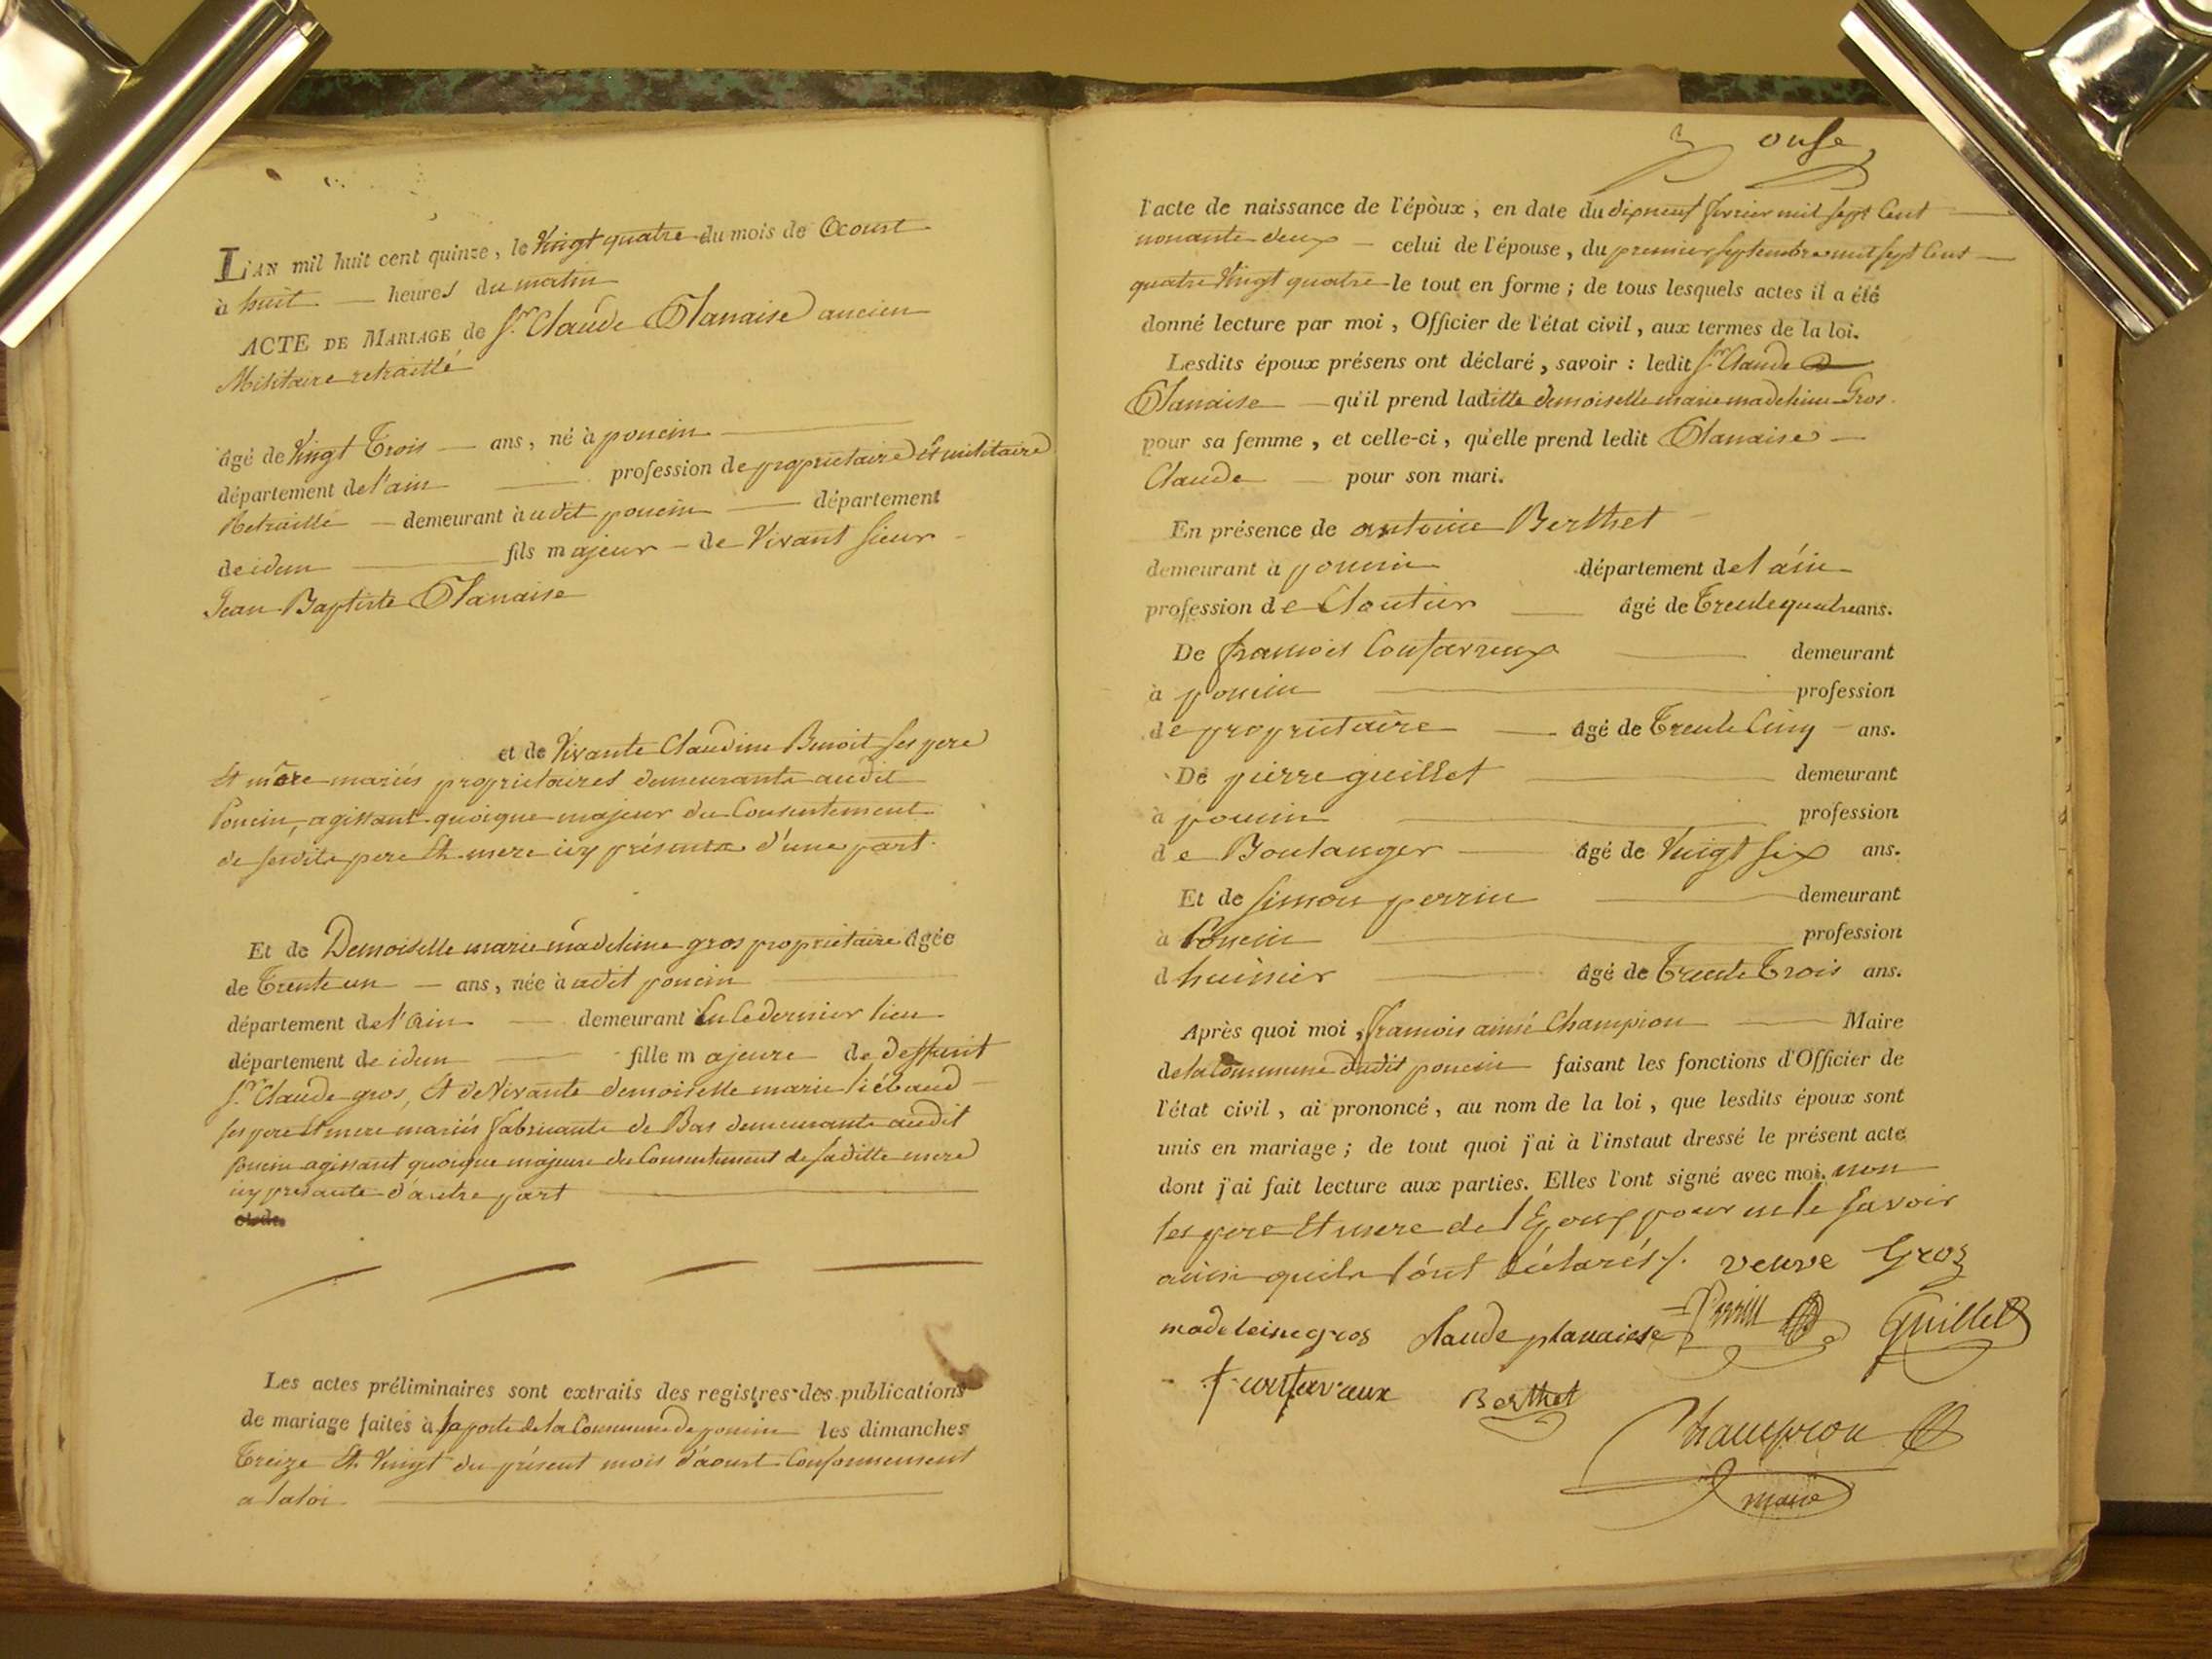 L'AN mil huit cent quinze, le Vingt quatre du mois de Aoust
à huit heures du matin
ACTE DE MARIAGE de Sr. Claude Planaise ancien
Militaire retraitté
âgé de Vingt Trois ans, né à poncin
département de l'ain profession de proprietaire Et militaire
Retraitté demeurant à udit poncin département
de idem fils majeur de Vivant sieur
Jean Baptiste Planaise
et de Vivante Claudine Benoit ses pere
Et mere mariés proprietaires demeurants audit
Poncin, agissant quoique majeur du Consentement
de sesdits pere Et mere icy présents d'une part.
Et de Demoiselle marie madeleine gros propriétaire âgée
de Trente un ans, née à udit poncin
département de l'Ain demeurant En ce dernier lieu
département de idem fille majeure de deffunt
Sr. Claude gros, Et de Vivante demoiselle marie liébaud
ses pere Et mere mariés fabricants de Bas demeurants audit
poncin agissant quoique majeure du Consentement de saditte mere
icy presente d'autre part
Les actes préliminaires sont extraits des registres des publications
de mariage faites à la porte de la Commune de poncin les dimanches
Treize Et Vingt du présent mois d'aoust Conformement
a la loi
onse
l'acte de naissance de l'époux, en date du dixneuf fevrier mil sept Cent
nonante deux celui de l'épouse, du premier septembre mil sept Cent
quatre Vingt quatre le tout en forme; de tous lesquels actes il a été
donné lecture par moi, Officier de l'état civil, aux termes de la loi.
Lesdits époux présens ont déclaré, savoir: ledit Sr. Claude
Planaise qu'il prend laditte demoiselle marie madeleine Gros
pour sa femme, et celle-ci, qu'elle prend ledit Planaise
Claude pour son mari.
En présence de antoine Berthet
demeurant à poncin département de l'ain
profession de Cloutier âgé de Trente quatre ans.
De francois Confavreux demeurant
à poncin profession
de proprietaire âgé de Trente Cinq ans.
De pierre guillet demeurant
à poncin profession
de Boulanger âgé de Vingt six ans.
Et de simon perrin demeurant
à Poncin profession
d huissier âgé de Trente Trois ans.
Après quoi moi, francois aimé Champion Maire
de la Commune dudit poncin faisant les fonctions d'Officier de
l'état civil, ai prononcé, au nom de la loi, que lesdits époux sont
unis en mariage; de tout quoi j'ai à l'instant dressé le présent acte
dont j'ai fait lecture aux parties. Elles l'ont signé avec moi. non
les pere Et mere de l'Epoux pour ne le savoir
ainsi quils l'ont déclarés /. veuve Gros
madeleine gros Claude planaise Perrin Guillet
f confavreux Berthet
Champion
maire